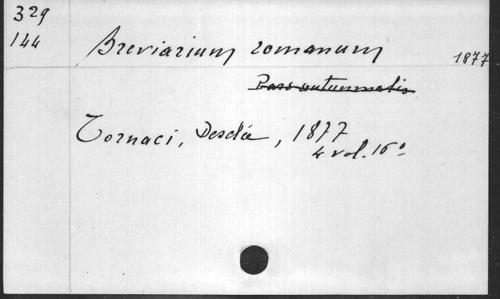 329
144
Breviarium romanum
1877
Pars autumnalis
Tornaci, Desclée, 1877
4 vol. 16°